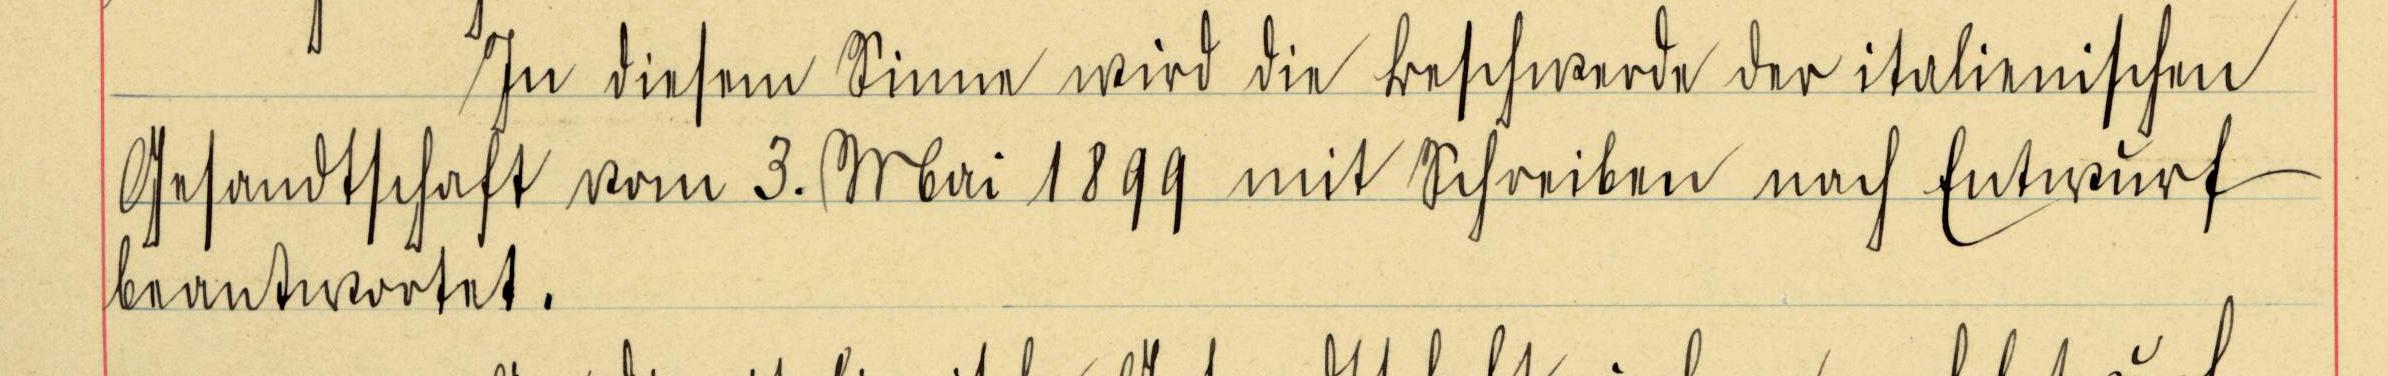 In diesem Sinne wird die Beschwerde der italienischen
Gesandtschaft vom 3. Mai 1899 mit Schreiben nach Entwurf
beantwortet.